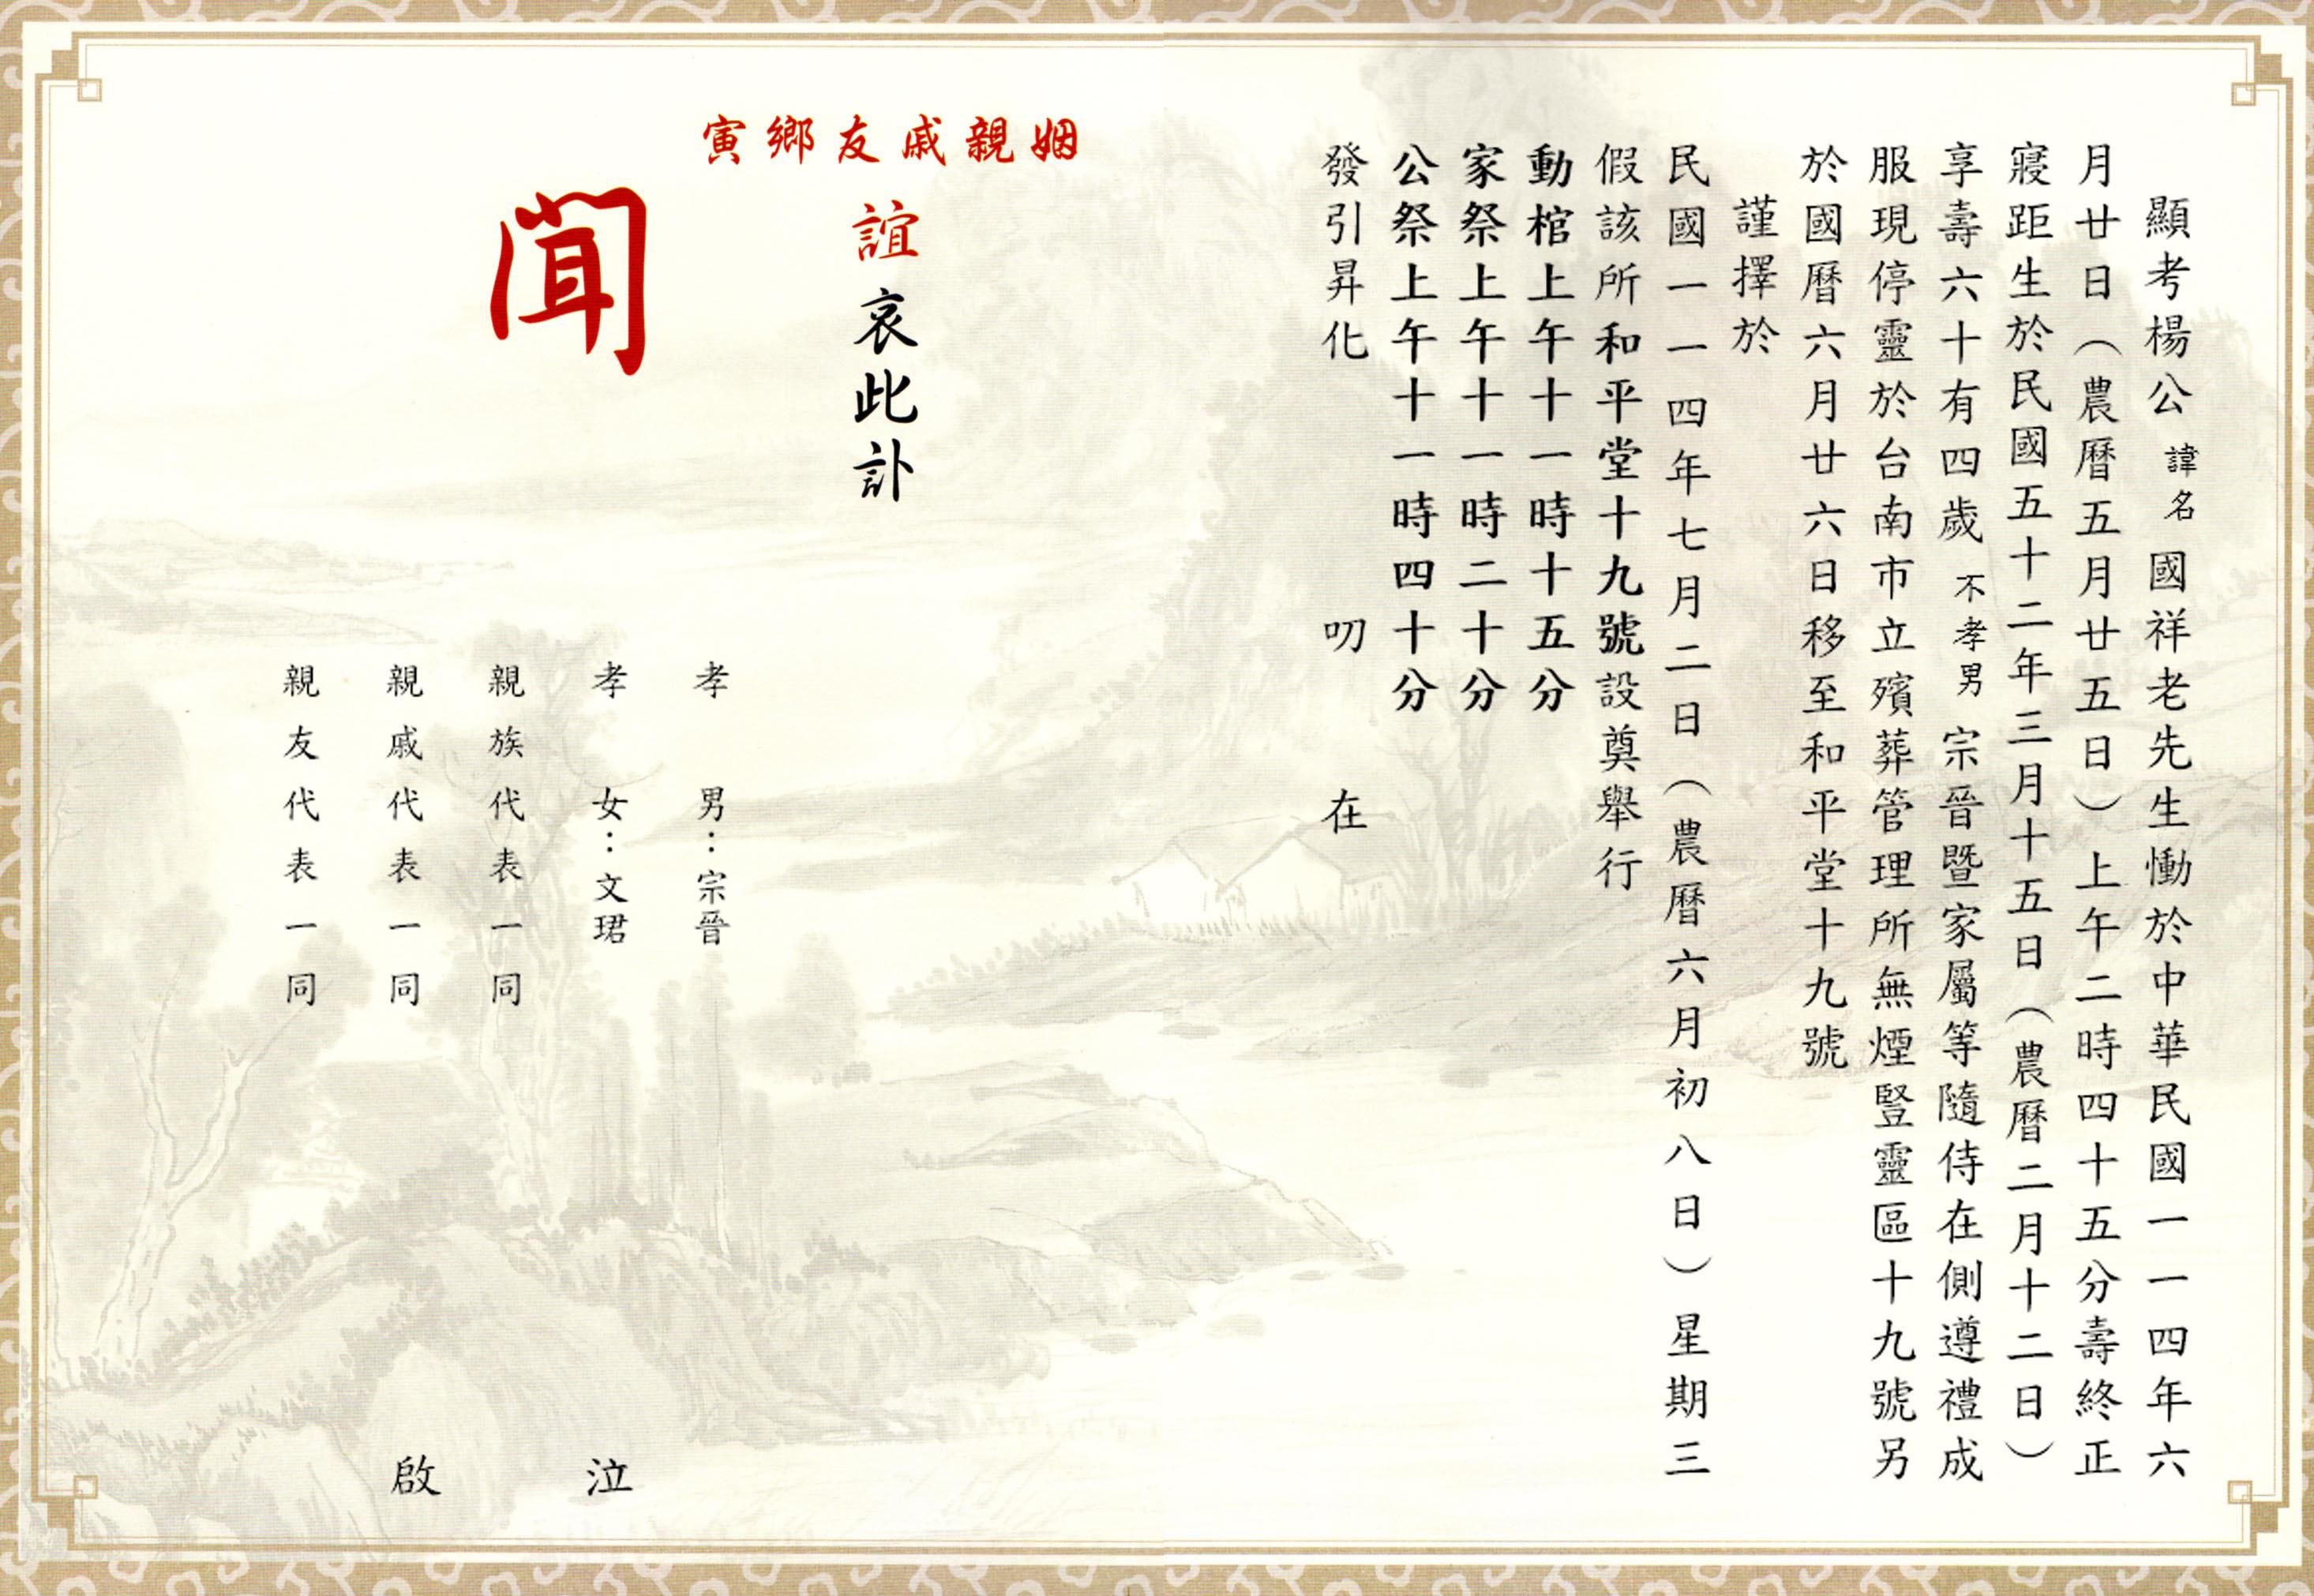 顯考楊公諱名國祥老先生慟於中華民國一一四年六
月廿日（農曆五月廿五日）上午二時四十五分壽終正
寢距生於民國五十二年三月十五日（農曆二月十二日）
享壽六十有四歲不孝男宗晉暨家屬等隨侍在側遵禮成
服現停靈於台南市立殯葬管理所無煙豎靈區十九號另
於國曆六月廿六日移至和平堂十九號
謹擇於
民國一一四年七月二日（農曆六月初八日）星期三
假該所和平堂十九號設奠舉行
動棺上午十一時十五分
家祭上午十一時二十分
公祭上午十一時四十分
發引昇化 叨在
姻親戚友鄉寅
誼哀此訃
聞
孝男：宗晉
孝女：文珺
親族代表一同
親戚代表一同
親友代表一同
泣啟